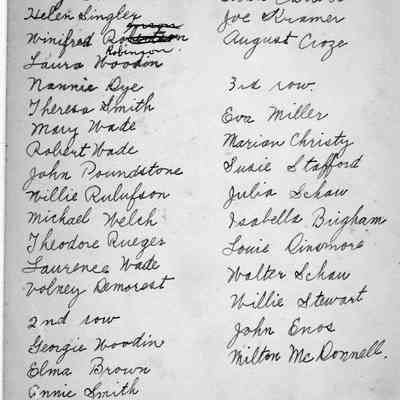 Helen Singler
Winifred Robinson.
Laura Woodin
Nannie Dye
Theresa Smith
Mary Wade
Robert Wade
John Poundstone
Willie Rulufson
Michael Welch
Theodore Rueger
Laurence Wade
Volney Demorest
2nd row
Georgie Woodin
Elma Brown
Annie Smith
Joe Kramer
August Croze
3rd row.
Eva Miller
Marian Christy
Susie Stafford
Julia Schaw
Isabella Brigham
Louie Dinsmore
Walter Schaw
Willie Stewart
John Enos
Milton McDonnell.